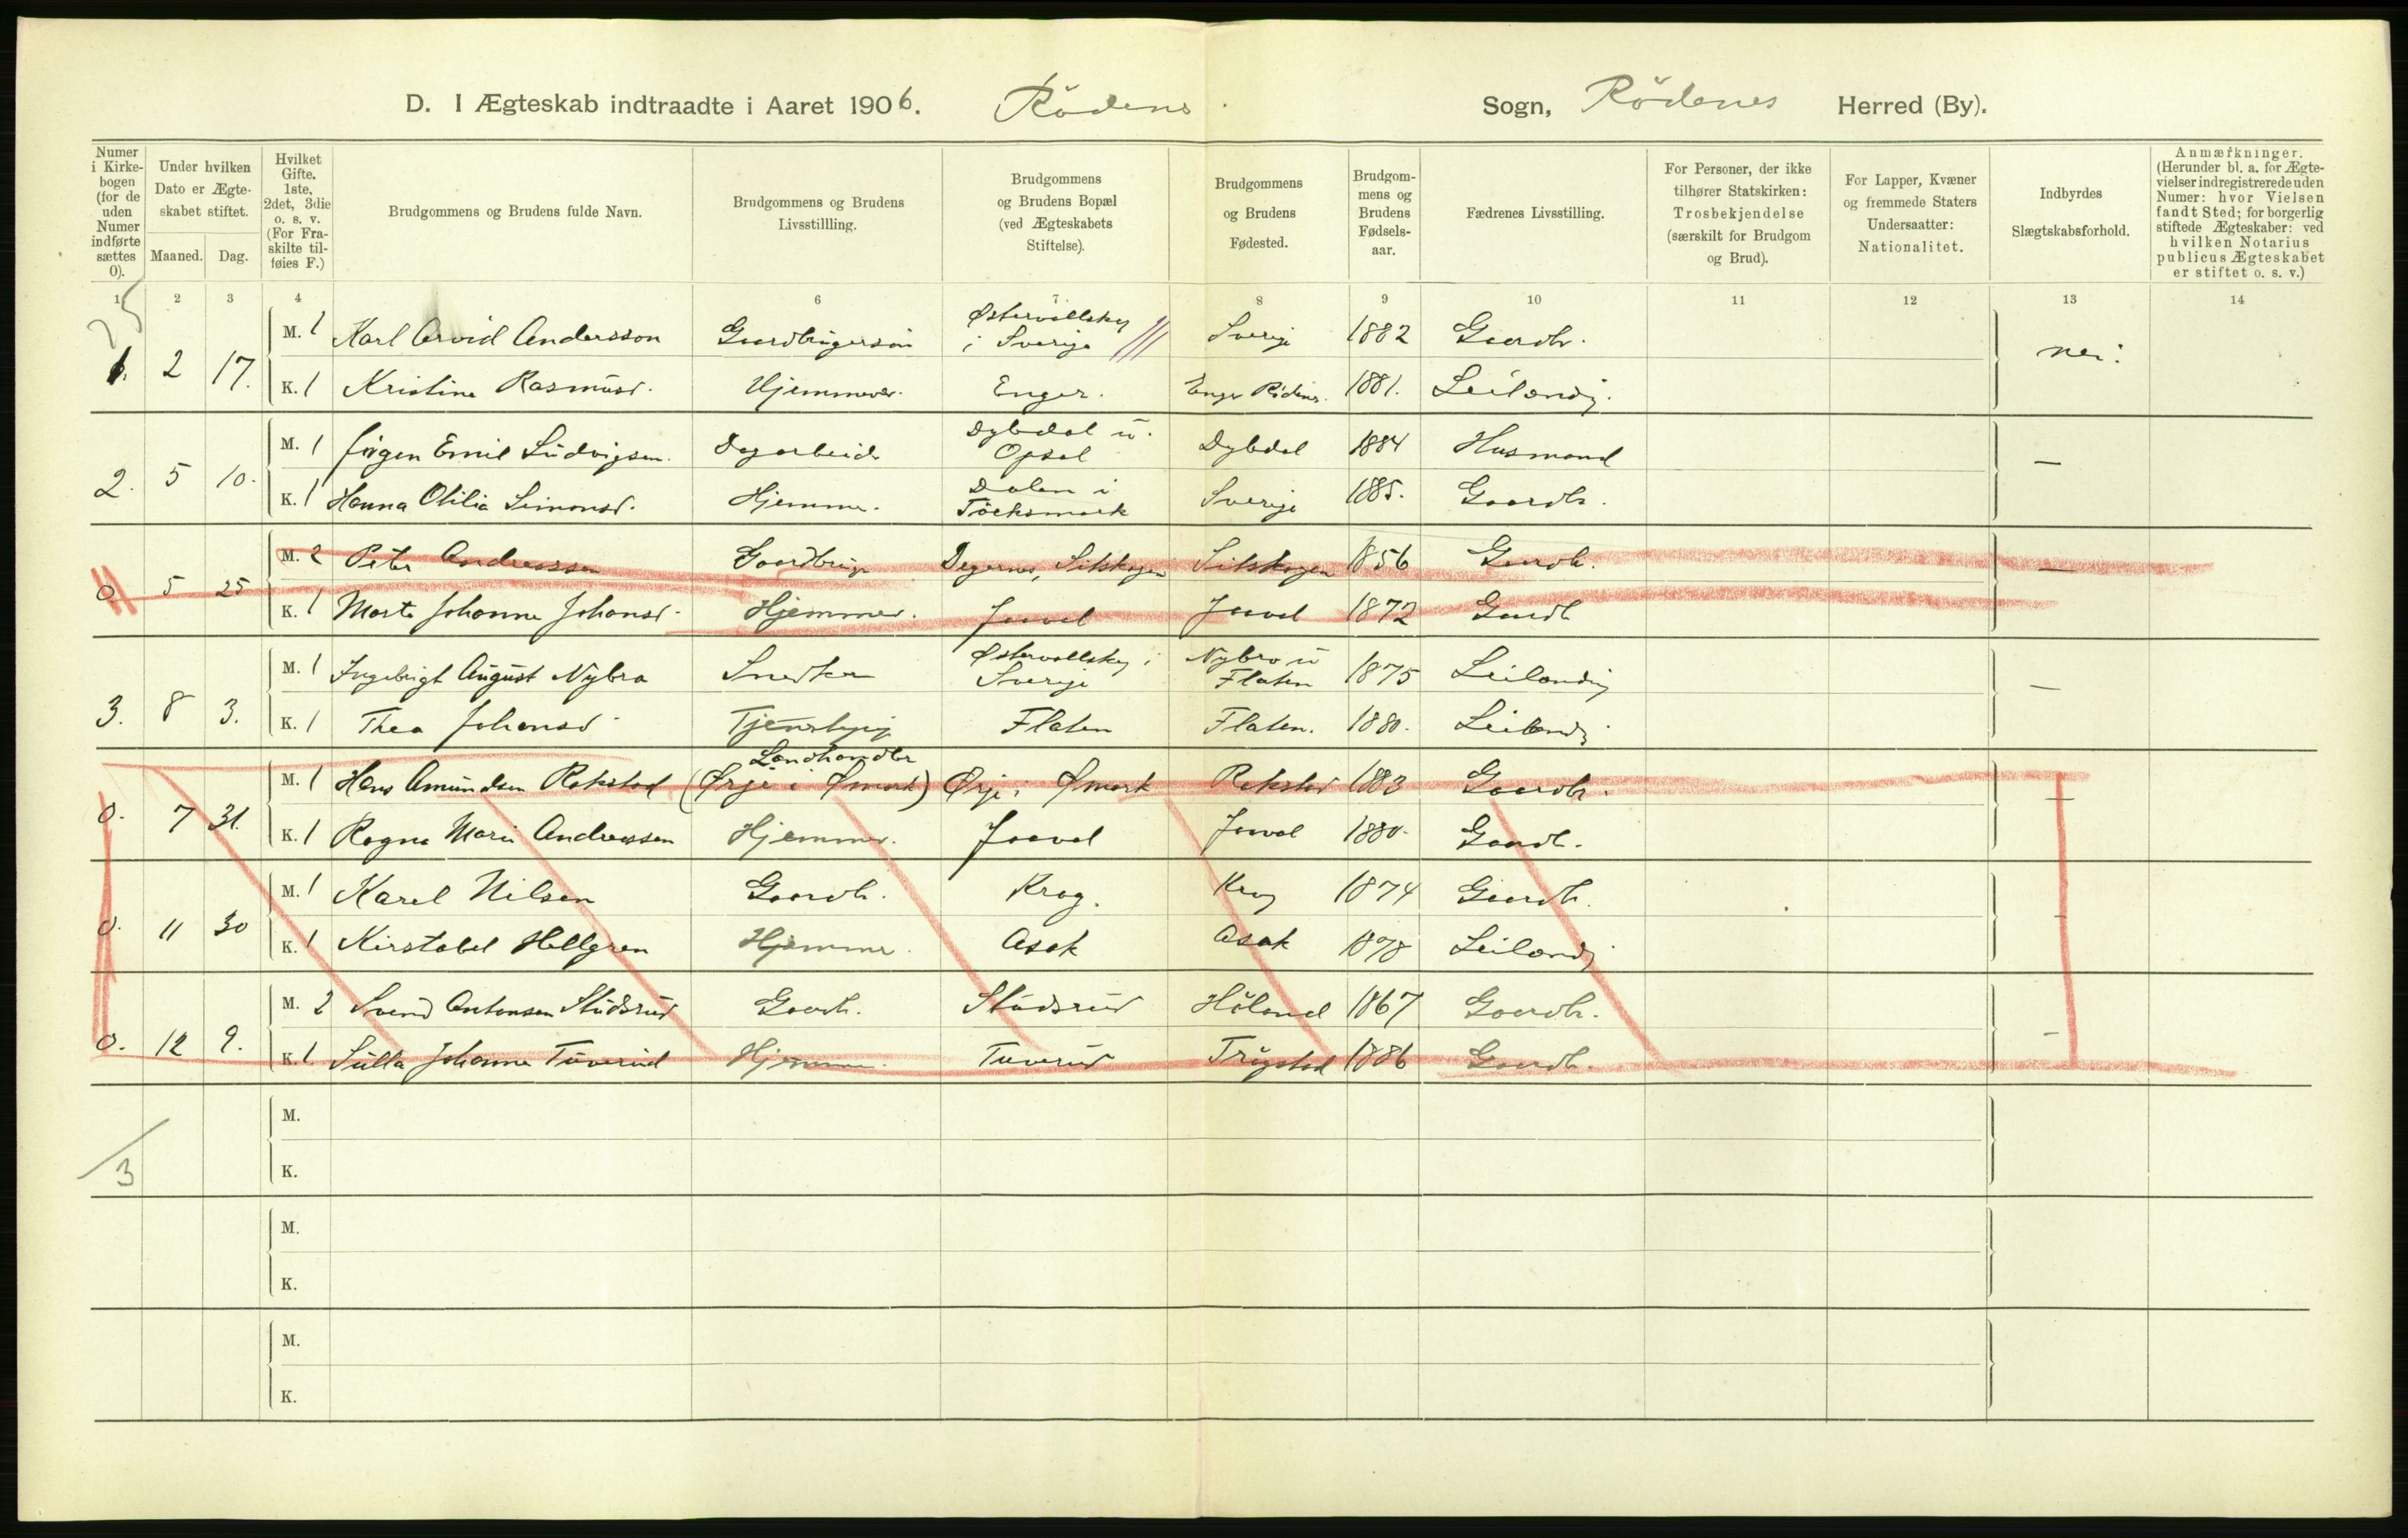 D. I Ægteskab indtraadte i Aaret 1906. Rödenes Sogn, Rödenes Herred (By).
Numer i Kirkebogen (for de uden Numer indførte sættes 0).
Under hvilken Dato er Ægteskabet stiftet.
Maaned. Dag.
Hvilket Gifte. 1ste, 2det, 3die o. s. v. (For Fraskilte tilføies F.)
Brudgommens og Brudens fulde Navn.
Brudgommens og Brudens Livsstillling.
Brudgommens og Brudens Bopæl (ved Ægteskabets Stiftelse).
Brudgommens og Brudens Fødested.
Brudgommens og Brudens Fødselsaar.
Fædrenes Livsstilling.
For Personer, der ikke tilhører Statskirken: Trosbekjendelse (særskilt for Brudgom og Brud).
For Lapper, Kvæner og fremmede Staters Undersaatter: Nationalitet.
Indbyrdes Slægtskabsforhold.
Anmærkninger. (Herunder bl. a. for Ægtevielser indregistrerede uden Numer: hvor Vielsen fandt Sted; for borgerlig stiftede Ægteskaber: ved hvilken Notarius publicus Ægteskabet er stiftet o. s. v.)
1 2 3 4 6 7. 8 9 10 11 12 13 14
25
1. 2 17. M. 1 Karl Arvid Andersson Gaardbrugersön Østervallskog i Sverige Sverige 1882 Gaardb. nei
K. 1 Kristine Rasmusd. Hjemmevær. Enger. Enger Rödenes. 1881. Leilænd.
2. 5 10. M. 1 Jörgen Emil Ludvigsen. Dagarbeid. Dybdal u. Opsal Dybdal 1884 Husmand —
K. 1 Hanna Otilia Simonsd. Hjemme. Dalen i Töcksmark Sverige 1885. Gaardb.
0 5 25 M. 2 Peter Andreassen Gaardbrug Degernes, Sitskogen Sitskogen 1856 Gaardb. —
K. 1 Marte Johanne Johansd. Hjemmev. Jaavel Jaavel 1872 Gaardb
3. 8 3. M. 1 Ingebrigt August Nybro Snedker Østervallskog i Sverige Nybro u Flaten 1875 Leilænding —
K. 1 Thea Johansd. Tjenstepige Flaten Flaten. 1880. Leilænd.
0. 7 31. M. 1 Hans Amundsen Rakstad Landhandler (Ørje i Ømark) Ørje i Ømark Rakstad 1883 Gaardb. —
K. 1 Ragna Marie Andreassen Hjemmev. Jaavel Jaavel 1880. Gaardb.
0. 11 30 M. 1 Karel Nilsen Gaardb. Krog. Krog 1874 Gaardb. -
K. 1 Kirstabel Hellgren Hjemme Asak Asak 1878 Leilænd.
0. 12 9. M. 2 Svend Antonsen Studsrud Gaardb. Studsrud Höland 1867 Gaardb. -
K. 1 Julla Johanne Tuverud Hjemme. Tuverud Trögstad 1886 Gaardb.
M.
3
K.
M.
K.
M.
K.